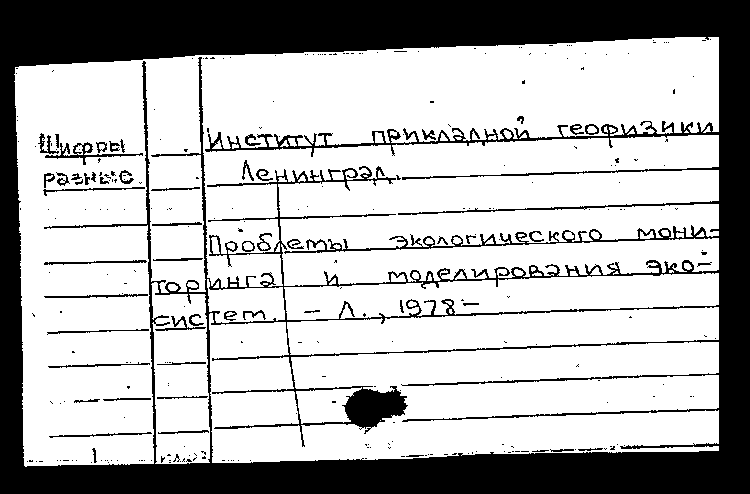 Шифры
разные
Институт прикладной геофизики
Ленинград.
Проблемы экологического мони-
торинга и моделирования эко-
систем. – Л., 1978–